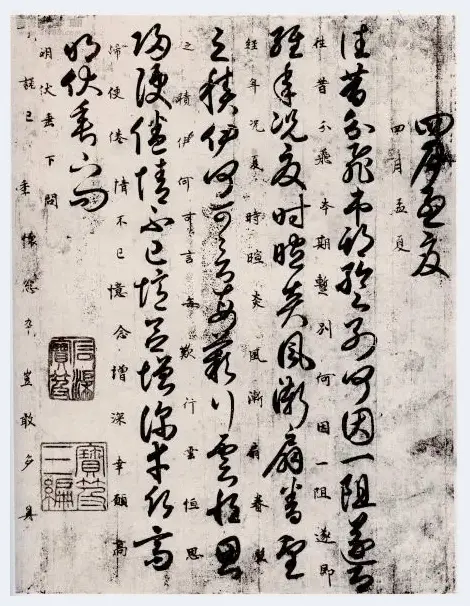 四月孟夏
四月孟夏
往昔分飛本期暫別何因一阻遂即
往昔分飛本期暫別何因一阻遂即
經年況夏時暄炎風漸扇眷望
經年況夏時暄炎風漸扇眷
之積伊何可言每歎行雲恒思
之積伊何可言每歎行雲恒思
歸便倦情不已憶念增深幸願高
便倦情不已憶念增深幸願高
明伏垂下問
明伏垂下問
已懷卒豈敢多具
石渠寶笈
寶笈三編